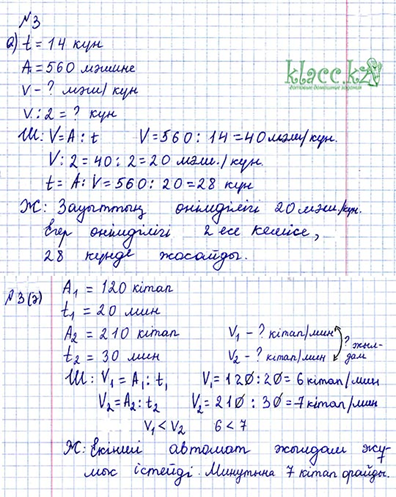 №3
а) t = 14 күн
A = 560 мәшине
V - ? мәш/күн
V : 2 = ? күн
Ш: V = A : t V = 560 : 14 = 40 мәш/күн.
V : 2 = 40 : 2 = 20 мәш./күн.
t = A : V = 560 : 20 = 28 күн
Ж: Зауыттың өнімділігі 20 мәш/күн.
Егер өнімділігі 2 есе кемісе,
28 күнде жасайды.
klacc.kz
готовые домашние задания
№3(ә) A₁ = 120 кітап
t₁ = 20 мин
A₂ = 210 кітап V₁ - ? кітап/мин
t₂ = 30 мин V₂ - ? кітап/мин ? жыл-
дам
Ш: V₁ = A₁ : t₁ V₁ = 120 : 20 = 6 кітап/мин
V₂ = A₂ : t₂ V₂ = 210 : 30 = 7 кітап/мин
V₁ < V₂ 6 < 7
Ж: Екінші автомат жылдам жұ-
мыс істейді. Минутына 7 кітап орайды.